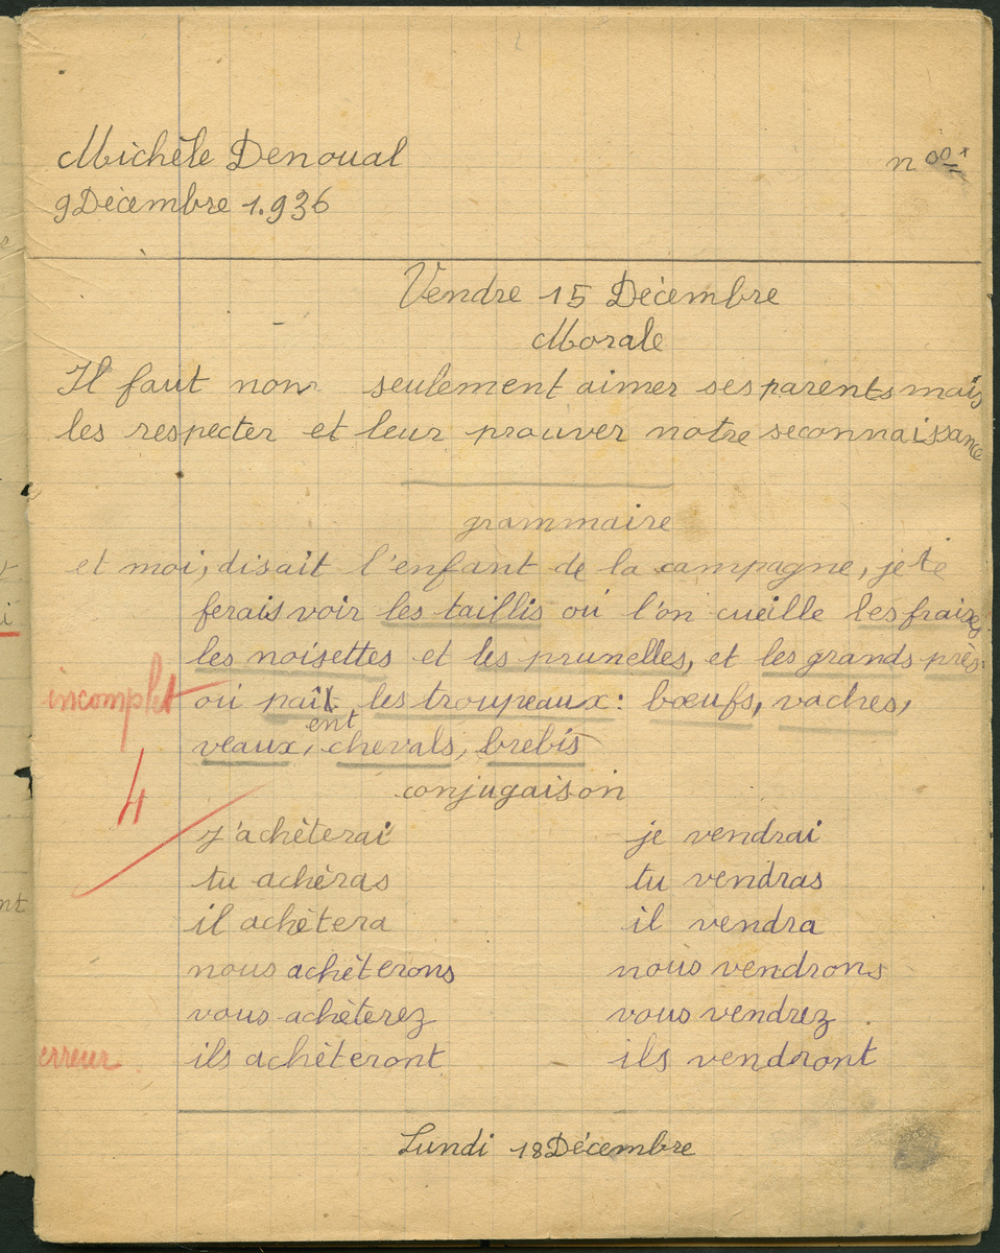 Michèle Denoual n
9 Décembre 1.936
Vendre 15 Décembre
Morale
Il faut non seulement aimer ses parents mais
les respecter et leur prouver notre seconnaissance
grammaire
et moi, disait l'enfant de la campagne, je te
ferais voir les taillis où l'on cueille les fraizes
les noisettes et les prunelles, et les grands près
incomplet où paît les troupeaux : bœufs, vaches,
ent
veaux, chevals, brebis
4
conjugaison
j'achèterai je vendrai
tu achèras tu vendras
il achètera il vendra
nous achèterons nous vendrons
vous achèterez vous vendrez
erreur ils achèteront ils vendront
Lundi 18 Décembre